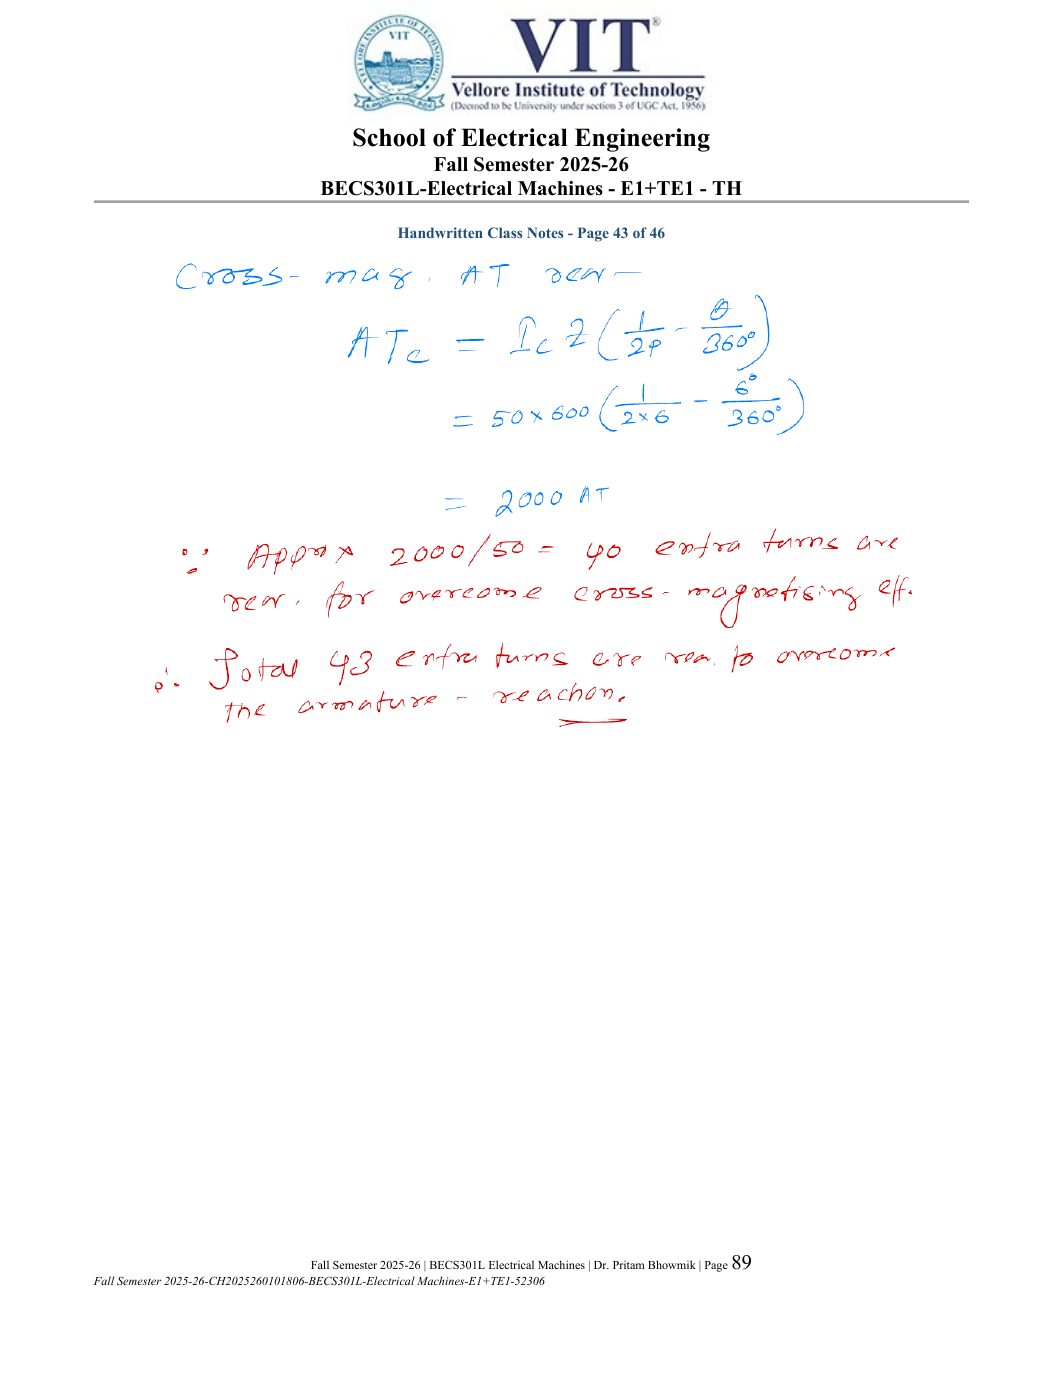 VIT®
VELLORE INSTITUTE OF TECHNOLOGY
VIT
Vellore Institute of Technology
(Deemed to be University under section 3 of UGC Act, 1956)
School of Electrical Engineering
Fall Semester 2025-26
BECS301L-Electrical Machines - E1+TE1 - TH
Handwritten Class Notes - Page 43 of 46
Cross-mag. AT
ATc = Ic Z (1/2P - θ/360°)
= 50 × 600 (1/2×6 - 6°/360°)
= 2000 AT
∵ Approx 2000/50 = 40 extra turns are
for overcome cross-magnetising eff.
∴ Total 43 extra turns are to overcome
the armature - reaction.
Fall Semester 2025-26 | BECS301L Electrical Machines | Dr. Pritam Bhowmik | Page 89
Fall Semester 2025-26-CH2025260101806-BECS301L-Electrical Machines-E1+TE1-52306